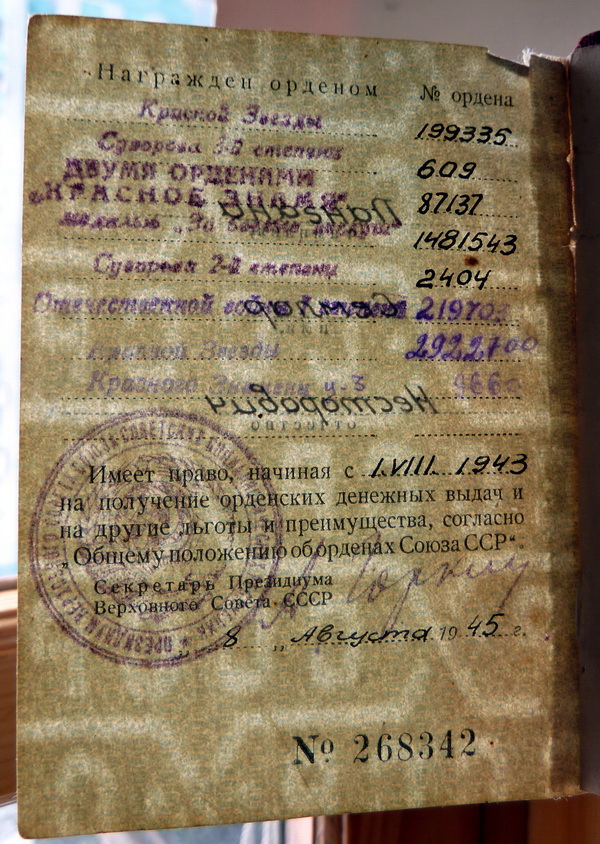 Награжден орденом № ордена
Красной Звезды 199335
Суворова 3-й степени 609
ДВУМЯ ОРДЕНАМИ
„КРАСНОЕ ЗНАМЯ“ 87137
медалью „За боевые заслуги“ 1481543
Суворова 2-й степени 2404
Отечественной войны степени 219703
Красной Звезды 2922700
Красного Знамени
Имеет право, начиная с 1.VIII. 1943
на получение орденских денежных выдач и
на другие льготы и преимущества, согласно
„Общему положению об орденах Союза ССР“.
Секретарь Президиума
Верховного Совета СССР Горкин
„ 8 „ Августа 1945 г.
№ 268342
Несторович
отчество